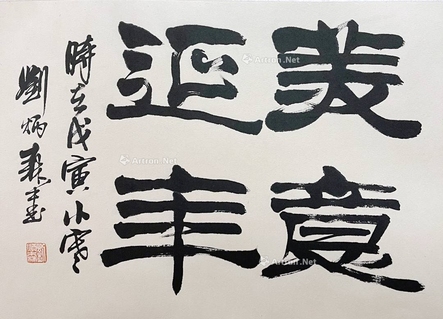 美意
延年
時在戊寅小寒
劉炳森書
Artron.Net
Artron.Net
Artron.Net
Artron.Net